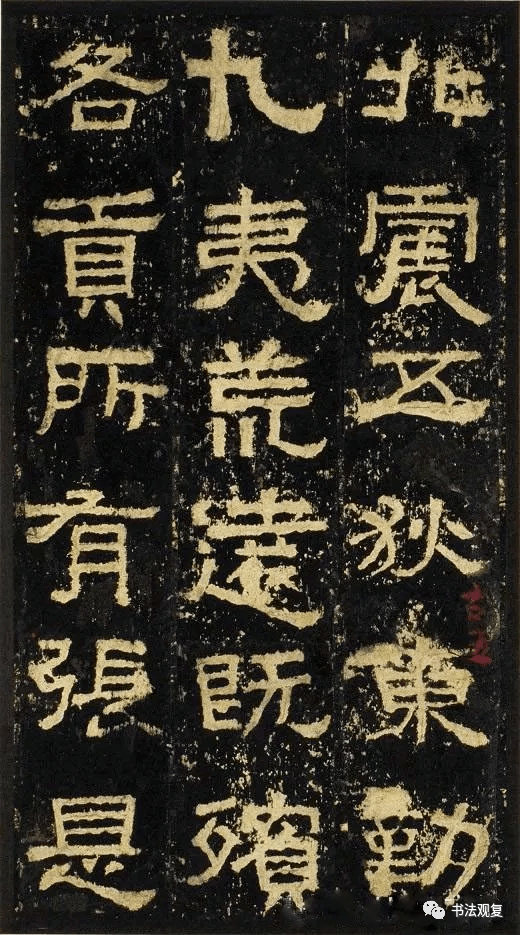 北震五狄東勤
九夷荒遠既殯
各貢所有張是
书法观复